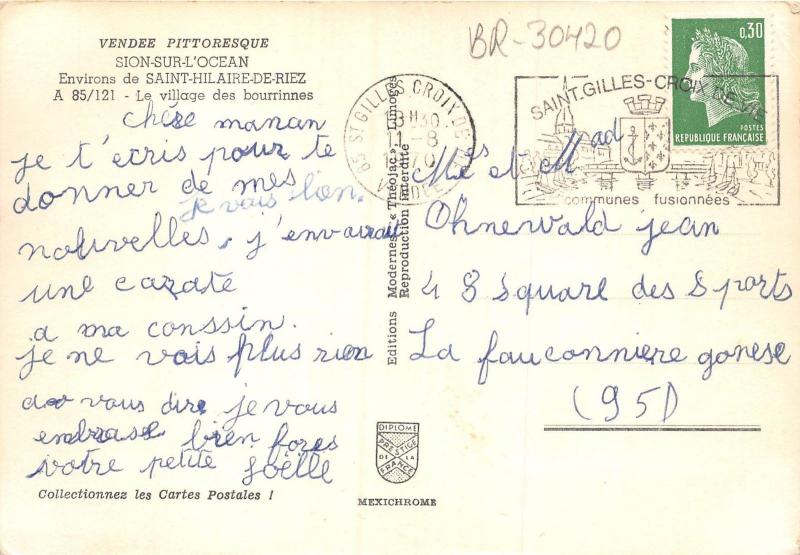 BR-30420
VENDEE PITTORESQUE
SION-SUR-L'OCEAN
Environs de SAINT-HILAIRE-DE-RIEZ
A 85/121 - Le village des bourrinnes
chère manan
je t'écris pour te
donner de mes
je vais bon.
nouvelles. j'envairai
une carate
a ma conssin.
je ne vois plus rien
a vous dire je vous
enbrase bien fores
votre petite Joëlle
Collectionnez les Cartes Postales !
Editions Modernes « Théojac », Limoges
Reproduction Interdite
DIPLOME
PRESTIGE
DE LA
FRANCE
MEXICHROME
85 ST GILLES CROIX DE VIE
1-8
VENDEE
SAINT.GILLES-CROIX DE VIE
communes fusionnées
0,30
POSTES
REPUBLIQUE FRANÇAISE
Mrs et Mad
Ohnewald jean
48 square des Sports
La fauconniere gonese
(95)